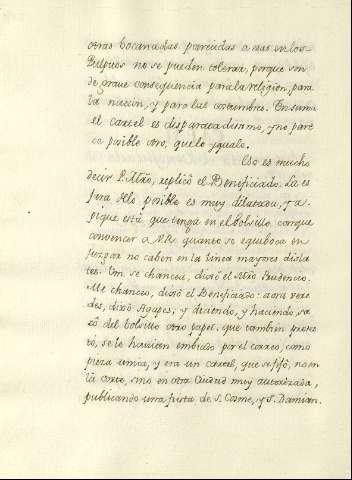 otras bocanadas parecidas a esas en los
Pulpitos no se pueden tolerar, porque son
de grave consequencia para la religion, para
la nacion, y para las costumbres. En suma
el cartel es disparatadisimo, y no pare
ce posible otro, que le yguale.
Eso es mucho
decir P. Mro, replicó el Beneficiado. La es
fera de lo posible es muy dilatada, y a
qui está que tengo en el bolsillo conque
convencer a V.R. quanto se equiboca en
juzgar no caben en la linea mayores dispara
tes. Vm. se chancea, dixo el Mro Prudencio.
Me chanceo, dixo el Beneficiado: aora vere
des, dixo Agages, y diciendo, y haciendo, sa
có del bolsillo otro papel, que tambien prome
tio, se le havian embiado por el correo, como
pieza unica, y era un cartel, que se fijó, no en
la corte, sino en otra Ciudad muy autorizada,
publicando una fiesta de S. Cosme, y S. Damian.